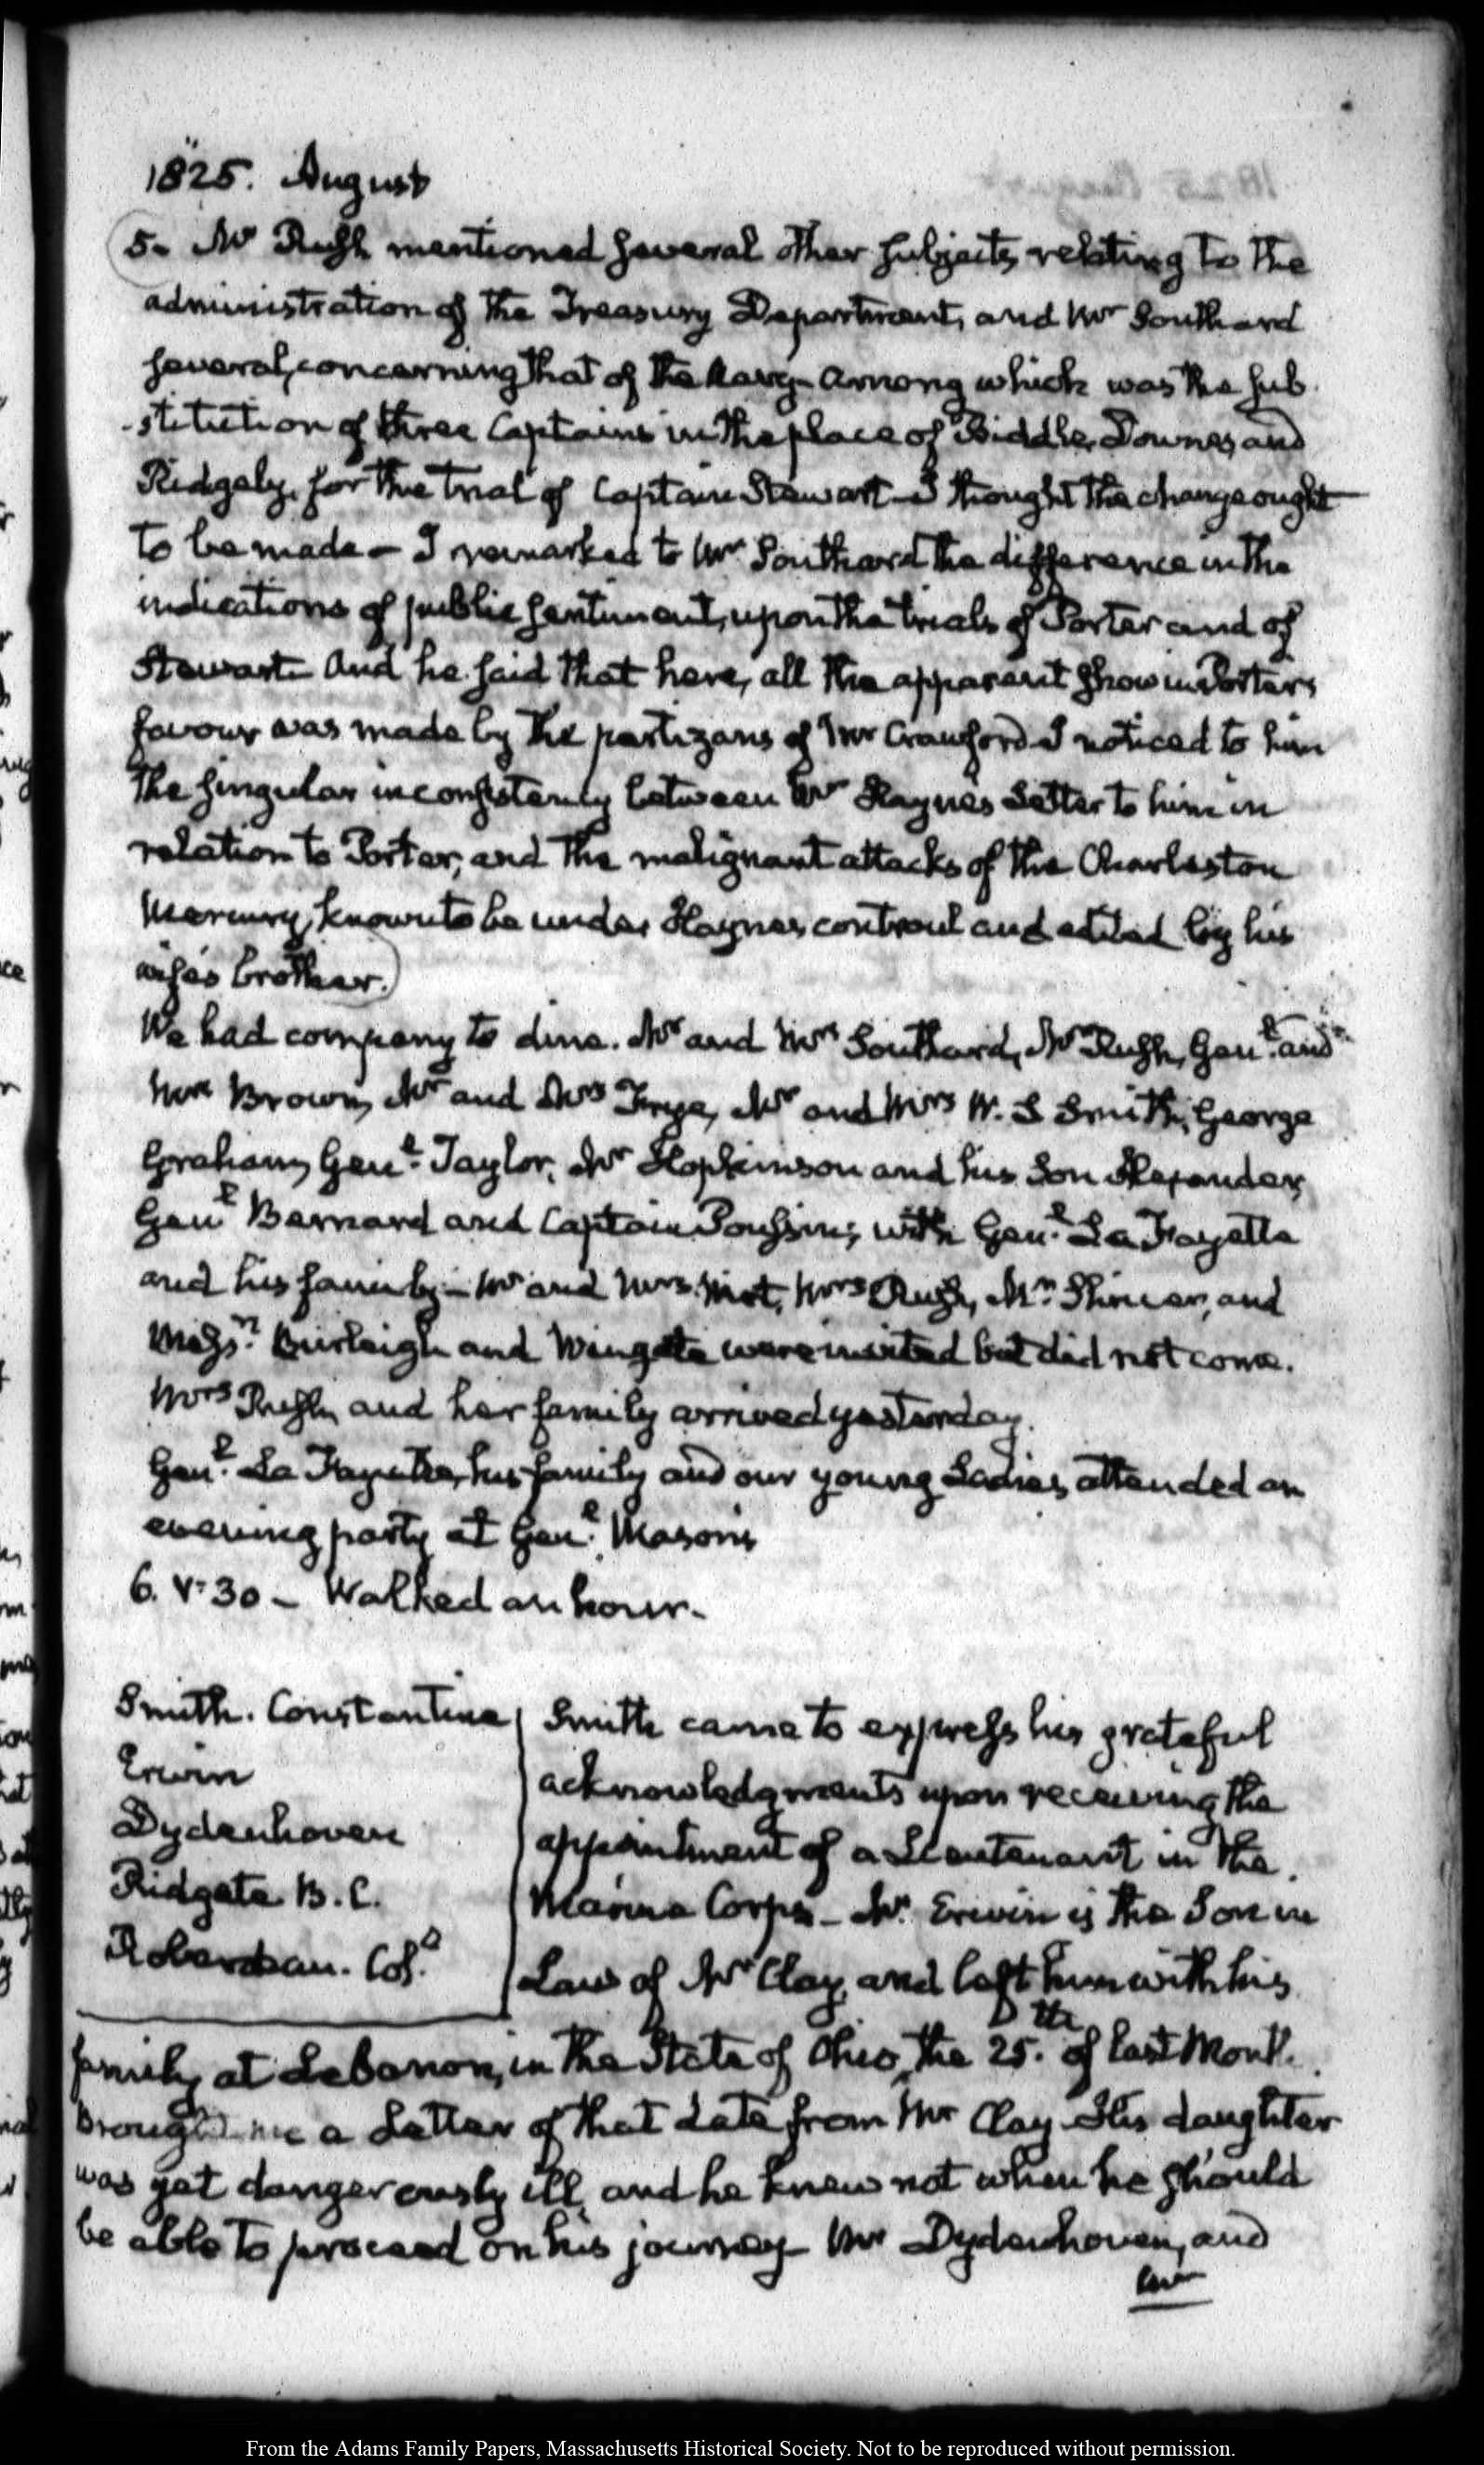 1825. August
5. Mr Rush mentioned several other subjects, relating to the
administration of the Treasury Department, and Mr Southard
several, concerning that of the Navy. Among which was the sub
-stitution of three Captains in the place of Biddle, Downes, and
Ridgely, for the trial of Captain Stewart—I thought the change ought
to be made—I remarked to Mr Southard the difference in the
indications of public sentiment, upon the trials of Porter and of
Stewart. And he said that here, all the apparent show in Porter's
favour was made by the partizans of Mr Crawford—I noticed to him
the singular inconsistency between Mr Hayne's Letter to him in
relation to Porter, and the malignant attacks of the Charleston
Mercury, known to be under Hayne's controul and edited by his
wife's brother.
We had company to dine. Mr and Mrs Southard, Mr Rush, Genl. and
Mrs Brown, Mr and Mrs Frye, Mr and Mrs W. S Smith, George
Graham, Genl. Taylor, Mr Hopkinson and his Son Alexander,
Genl Bernard and Captain Poussin, with Genl. La Fayette
and his family—Mr and Mrs Wirt, Mrs Rush, Mr and
Messrs. Burleigh and Wingate were invited but did not come.
Mrs Rush and her family arrived yesterday.
Genl. La Fayette, his family and our young Ladies, attended an
evening party at Genl. Mason's
6. V:30— Walked an hour.
Smith. Constantine
Erwin
Dydenhoven
Ridgate B. C.
Roberdeau. Coll.
Smith came to express his grateful
acknowledgments upon receiving the
appointment of a Lieutenant in the
Marine Corps—Mr. Erwin is the Son in
Law of Mr Clay, and left him with his
family at Lebanon, in the State of Ohio, the 25.th of last Month.
Brought me a Letter of that date from Mr Clay. His daughter
was yet dangerously ill, and he knew not when he should
be able to proceed on his journey—Mr Dydenhoven, and
Mr
From the Adams Family Papers, Massachusetts Historical Society. Not to be reproduced without permission.